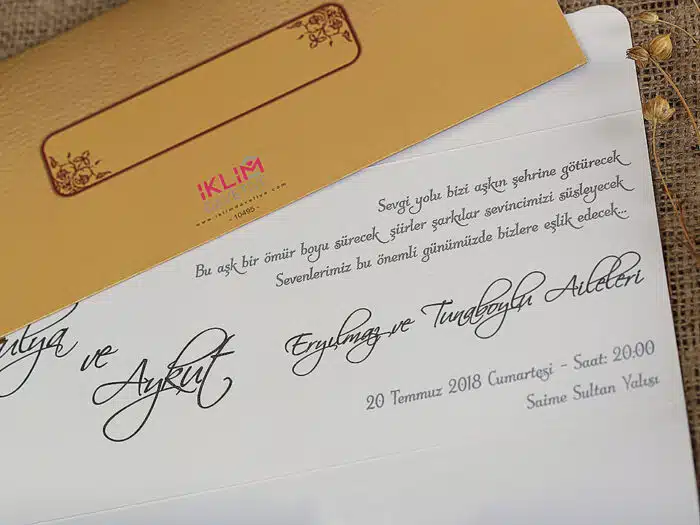 IKLIM
www.iklimdavetiye.com
- 10495 -
Sevgi yolu bizi aşkın şehrine götürecek
Bu aşk bir ömür boyu sürecek şiirler şarkılar sevincimizi süsleyecek
Sevenlerimiz bu önemli günümüzde bizlere eşlik edecek...
ve
Aykut
Eryılmaz ve Tunaboylu Aileleri
20 Temmuz 2018 Cumartesi - Saat: 20:00
Saime Sultan Yalısı